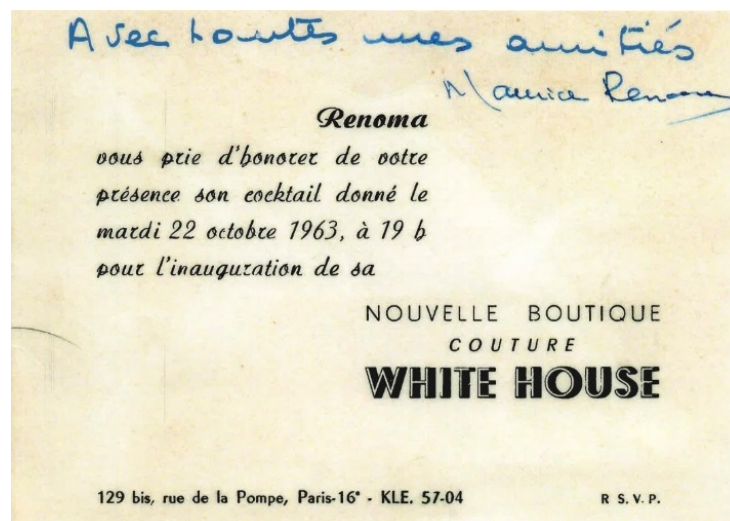 Avec toutes mes amitiés
Maurice Renoma
Renoma
vous prie d'honorer de votre
présence son cocktail donné le
mardi 22 octobre 1963, à 19 h
pour l'inauguration de sa
NOUVELLE BOUTIQUE
COUTURE
WHITE HOUSE
129 bis, rue de la Pompe, Paris-16e - KLE. 57-04
R S.V.P.